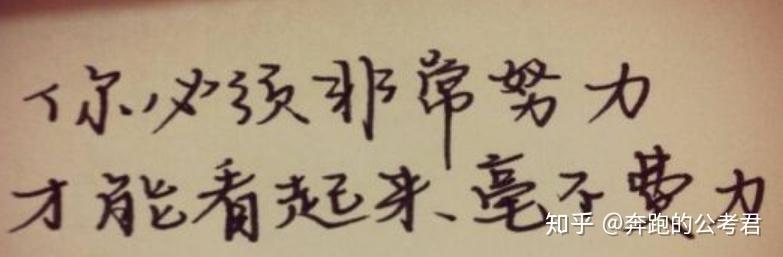 你必须非常努力
才能看起来毫不费力
知乎 @奔跑的公考君